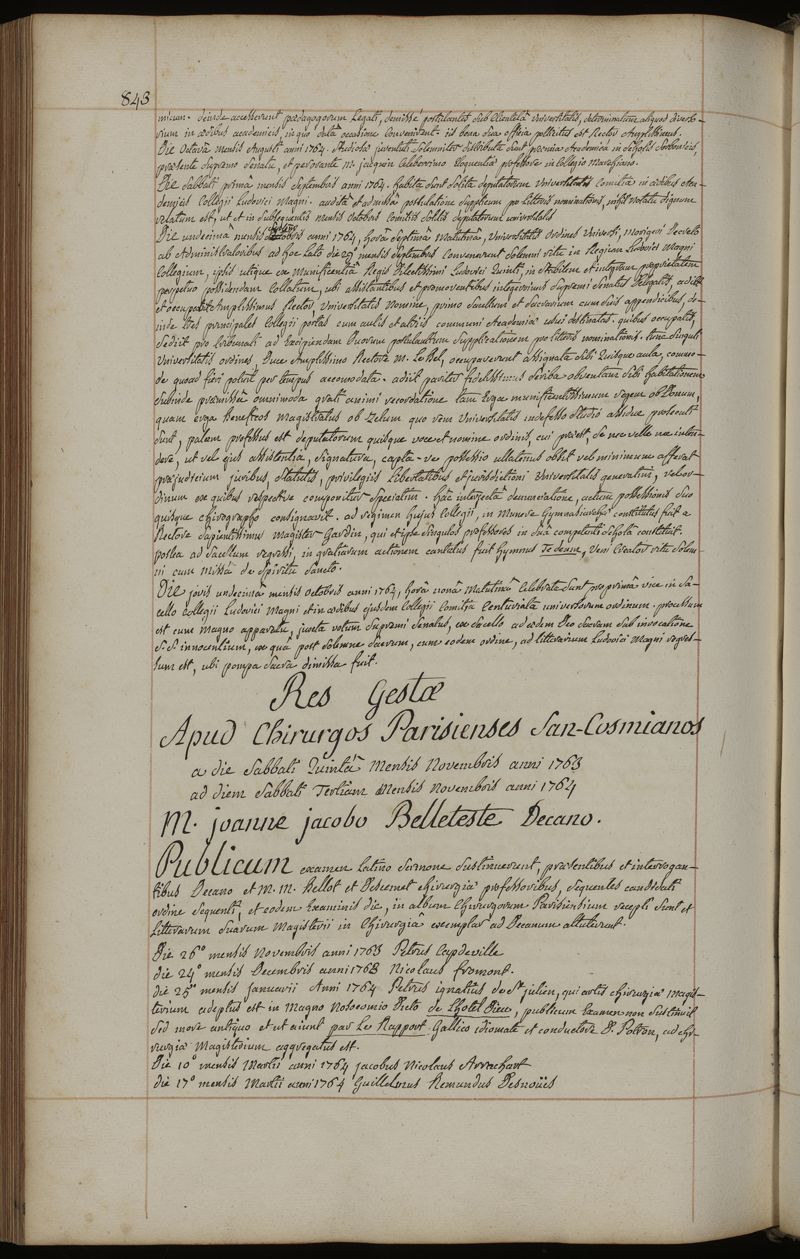 843
micum. deinde accesserunt pædagogorum Legati, demissé postulantes sub Clientelâ Universitatis, determinatum aliquod diverso-
rium in ædibus academicis, in quo datâ occasione Convenirent. iis bona sua officia pollicitus est Rector Amplissimus.
Die Octava mensis Augusti anni 1764. studiosæ juventuti solemniter distributa sunt præmia Academica in scholis Sorbonicis,
præsente supremo Senatu, et perorante M. jacquin Celeberrimo Eloquentiæ professore in Collegio
Die Sabbati primâ mensis septembris anni 1764. habita sunt solita deputatorum Universitatis Comitia in ædibus Aca-
demicis Collegii Ludovici Magni. auditâ et admissâ postulatione supplicum pro Litteris nominationis, nihil notatu dignum
relatum est, ut et in subsequentis mensis Octobris Comitiis solitis deputatorum universitatis
Die undecimâ mensis Octobris anni 1764, horâ septimâ matutinâ, Universitatis Ordines Universi, morigeri Decreto
ab Administratoribus ad hoc Lato die 29ª mensis septembris Convenerunt solemni ritu in Regium Ludovici Magni
Collegium, ipsis utique ex munificentiâ Regis Dilectissimi Ludovici Quinti, in stabilem et integram proprietatem
perpetuo possidendam Collatum, ubi assistantibus et promoventibus integerrimis supremi senatus Delegatis, adiit
et occupavit Amplissimus Rector, Universitatis nomine, primo sacellum et sacrarium cum suis appendicibus, de-
inde tres principales Collegii portas cum aulis et atriis communi Academiæ usui destinatis. quibus occupatis,
sediit pro tribunali ad Excipiendam Quorum postulantium supplicationem pro litteris nominationis. tunc singuli
Universitatis ordines, Duce Amplissimo Rectore M. Le Bel, occupaverunt assignata sibi quibusque aula, commo-
de quoad fieri potuit per tempus accomodata. adiit pariter fidelissimus scriba oblentam sibi habitationem
subinde præmissâ omnimoda grati animi recordatione tam Erga munificentissimum Regem ob Donum,
quam erga Beneficos magistratus ob Zelum quo rem Universitatis indefesso studio assidue prosecuti
sunt, palam professus est deputatorum quisque voce et nomine ordinis, cui præest, se nec velle nec inten-
dere, ut vel ejus assistentia, signatura, capta-ve possessio ullatenus obsit vel minimum afferat
præjudicium juribus, statutis, privilegiis Libertatibus et jurisdictioni Universitatis generatim, vel or-
dinum ex quibus respective componitur speciatim. hac interjectâ denunciatione, actum possessionis suo
quisque chirographo consignavit. ad regimen hujus Collegii, in munere Gymnasiarchæ constitutus fuit a
Rectore sapientissimus magister Gardin, qui et ipse singulos professores in suâ competenti scholâ constituit.
postea ad sacellum regressi, in gratiarum actionem cantatus fuit hymnus Te deum, Veni Creator ritu solem-
ni cum missâ de spiritu sancto.
Die jovis undecimâ mensis octobris anni 1764, horâ nonâ matutinâ celebrata sunt pro primâ vice in sa-
cello Collegii Ludovici Magni et in ædibus ejusdem Collegii Comitia Centuriata universorum ordinum. processum
est cum magno apparatu, juxta votum supremi senatus, ex sacello ad ædem Deo sacram sub invocatione
S. S. innocentium, ex quâ post solemne sacrum, cum eodem ordine, ad litterarium Ludovici Magni regres-
sum est, ubi pompa sacra dimissa fuit.
Res Gestæ
Apud Chirurgos Parisienses San-Cosmianos
a die Sabbati Quintâ Mensis Novembris anni 1763
ad diem Sabbati Tertiam Mensis Novembris anni 1764
M. joanne jacobo Belleteste Decano.
Publicum examen latino sermone sustinuerunt, præsentibus et interrogan-
tibus Decano et M. M. Bellot et Descemet chirurgiæ professoribus, sequentes candidati
ordine sequenti, et eodem Examinis die, in album Chirurgorum Parisiensium recepti sunt et
Litterarum suarum Magisterii in Chirurgiâ exemplar ad Decanum attulerunt.
Die 26º mensis Novembris anni 1763 Petrus Coydeville
die 24º mensis Decembris anni 1763 Nicolaus fromont.
die 28º mensis januarii Anni 1764 Petrus ignatius de St julien, qui artis chirurgiæ magis-
terium adeptus est in Magno Nosocomio Dicto de Lhotel Dieu, publicum Examen non sustinuit
sed more antiquo et ut aiunt par Le Rapport Gallico idiomate et conductore D. Polton, ad chi-
rurgiæ Magisterium aggregatus est.
Die 10º mensis Martii anni 1764 jacobus Nicolaus Arrachart
die 17º mensis Martii anni 1764 Guillelmus Remundus Desnoües